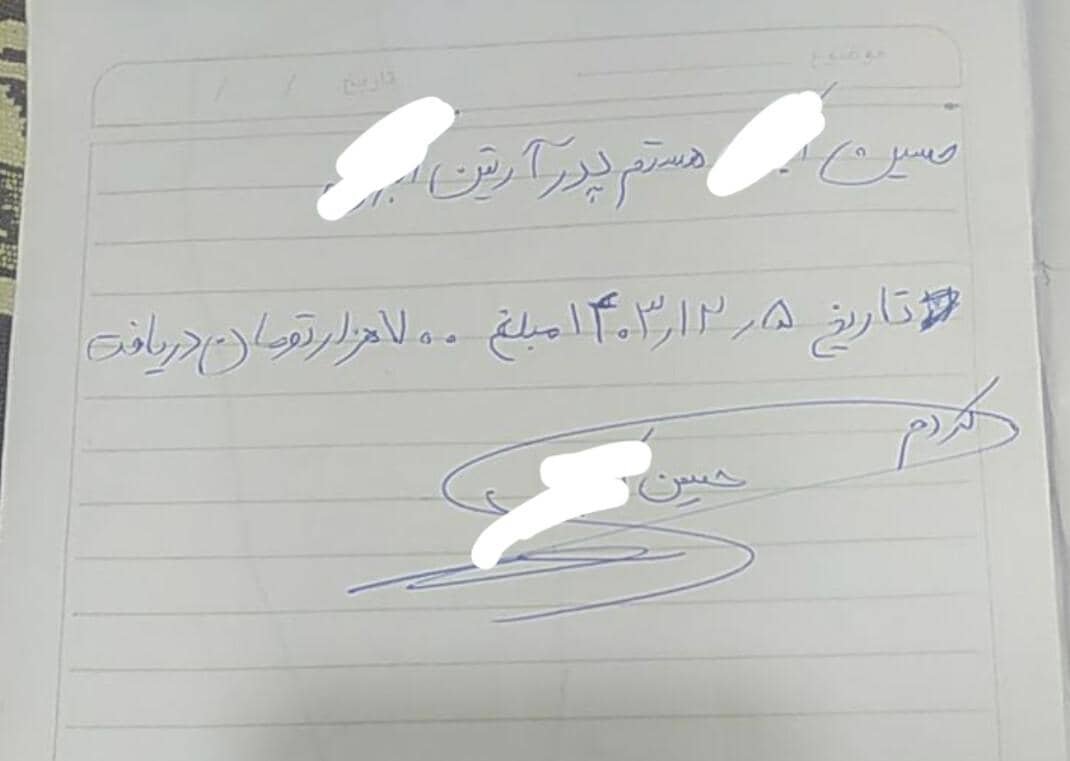 موضوع تاریخ / /
حسین هستم پدر آرتین
تاریخ ۱۴۰۳٫۱۲٫۵ مبلغ ۷۰۰ هزار تومان دریافت
کردم
حسین